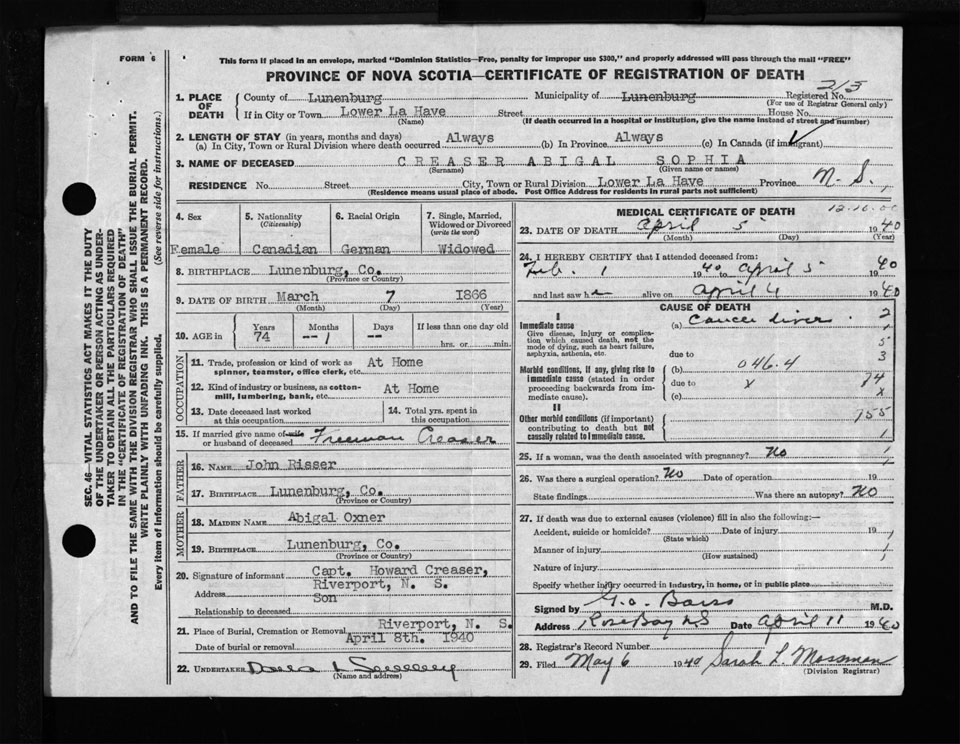 FORM 6
This form if placed in an envelope, marked "Dominion Statistics—Free, penalty for improper use $300," and properly addressed will pass through the mail "FREE"
PROVINCE OF NOVA SCOTIA—CERTIFICATE OF REGISTRATION OF DEATH
215
1. PLACE OF DEATH
County of Lunenburg Municipality of Lunenburg Registered No.
(For use of Registrar General only)
If in City or Town Lower La Have Street House No.
(Name) (If death occurred in a hospital or institution, give the name instead of street and number)
2. LENGTH OF STAY (in years, months and days)
(a) In City, Town or Rural Division where death occurred Always (b) In Province Always (c) In Canada (if immigrant)
3. NAME OF DECEASED CREASER ABIGAL SOPHIA
(Surname) (Given name or names)
RESIDENCE No. Street City, Town or Rural Division Lower La Have Province N. S.
(Residence means usual place of abode. Post Office Address for residents in rural parts not sufficient)
SEC. 46—VITAL STATISTICS ACT MAKES IT THE DUTY
OF THE UNDERTAKER OR PERSON ACTING AS UNDER-
TAKER TO OBTAIN ALL THE PARTICULARS REQUIRED
IN THE "CERTIFICATE OF REGISTRATION OF DEATH"
AND TO FILE THE SAME WITH THE DIVISION REGISTRAR WHO SHALL ISSUE THE BURIAL PERMIT.
WRITE PLAINLY WITH UNFADING INK. THIS IS A PERMANENT RECORD.
Every item of information should be carefully supplied. (See reverse side for instructions.)
4. Sex
Female
5. Nationality
(Citizenship)
Canadian
6. Racial Origin
German
7. Single, Married,
Widowed or Divorced
(write the word)
Widowed
8. BIRTHPLACE Lunenburg, Co.
(Province or Country)
9. DATE OF BIRTH March 7 1866
(Month) (Day) (Year)
10. AGE in
Years
74
Months
-- 1
Days
--
If less than one day old
hrs. or min.
OCCUPATION
11. Trade, profession or kind of work as
spinner, teamster, office clerk, etc. At Home
12. Kind of industry or business, as cotton-
mill, lumbering, bank, etc. At Home
13. Date deceased last worked
at this occupation
14. Total yrs. spent in
this occupation
15. If married give name of wife
or husband of deceased Freeman Creaser
FATHER
16. NAME John Risser
17. BIRTHPLACE Lunenburg, Co.
(Province or Country)
MOTHER
18. MAIDEN NAME Abigal Oxner
19. BIRTHPLACE Lunenburg, Co.
(Province or Country)
20. Signature of informant Capt. Howard Creaser,
Address Riverport, N. S.
Relationship to deceased Son
21. Place of Burial, Cremation or Removal Riverport, N. S.
Date of burial or removal April 8th. 1940
22. UNDERTAKER
(Name and address)
MEDICAL CERTIFICATE OF DEATH
23. DATE OF DEATH April 5 1940
(Month) (Day) (Year)
24. I HEREBY CERTIFY that I attended deceased from:
Feb. 1 1940 to April 5 1940
and last saw her alive on April 4 1940
CAUSE OF DEATH
I
Immediate cause
Give disease, injury or complica-
tion which caused death, not the
mode of dying, such as heart failure,
asphyxia, asthenia, etc.
(a) Cancer liver 2
1
5
3
due to
Morbid conditions, if any, giving rise to
immediate cause (stated in order
proceeding backwards from im-
mediate cause).
(b) 046.4
due to x 74
(c) x
II
Other morbid conditions (if important)
contributing to death but not
causally related to immediate cause.
155
1
25. If a woman, was the death associated with pregnancy? No
26. Was there a surgical operation? No Date of operation 19
State findings Was there an autopsy? No
27. If death was due to external causes (violence) fill in also the following:—
Accident, suicide or homicide? Date of injury 19
(State which)
Manner of injury
(How sustained)
Nature of injury
Specify whether injury occurred in industry, in home, or in public place
Signed by G. O. Barss M.D.
Address Rose Bay N S Date April 11 1940
28. Registrar's Record Number
29. Filed May 6 1940 Sarah L. Mossman
(Division Registrar)